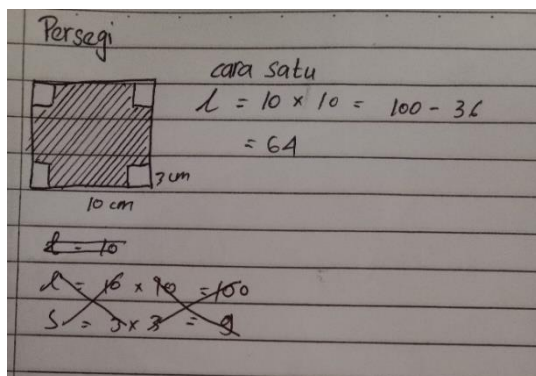 Persegi
cara satu
L = 10 × 10 = 100 - 36
= 64
3 cm
10 cm
L = 10
L = 10 × 10 = 100
S = 3 × 3 = 9